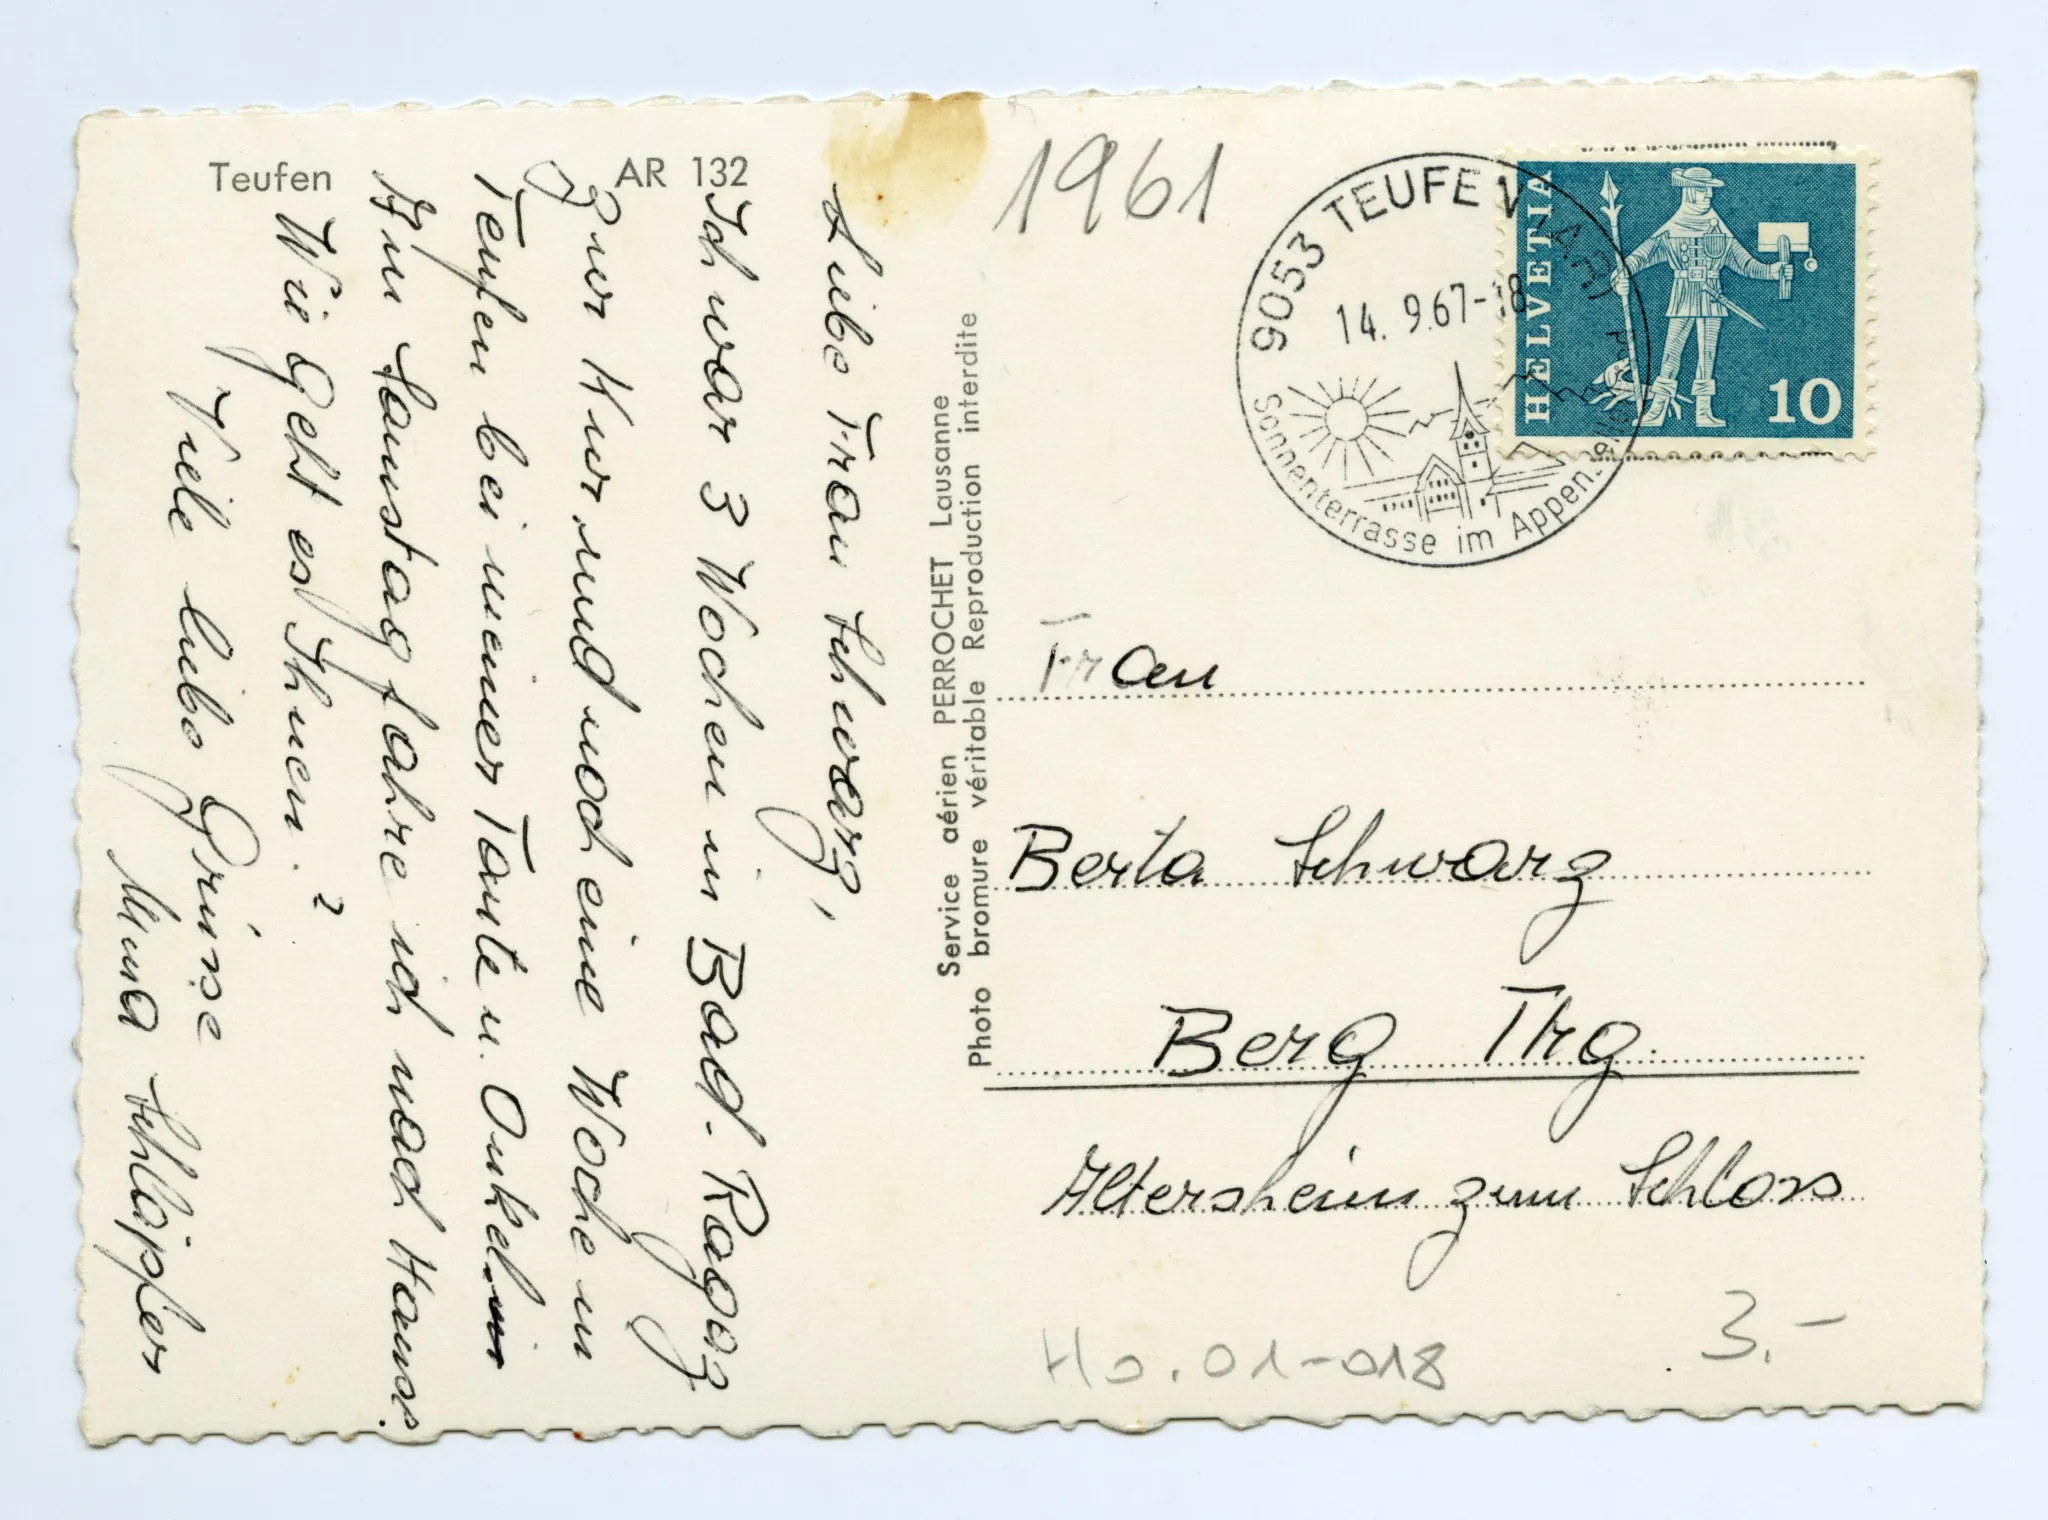 Teufen
AR 132
Liebe Frau Schwarz,
Ich war 3 Wochen in Bad-Ragaz
zur Kur und noch eine Woche in
Teufen bei meiner Tante u. Onkel
Am Samstag fahre ich nach Hause.
Wie geht es Ihnen?
Viele liebe Grüsse
Schläpfer
Service aérien PERROCHET Lausanne
Photo bromure véritable Reproduction interdite
1961
9053 TEUFEN (AR)
14. 9.67-18
Sonnenterrasse im Appen
HELVETIA
10
Frau
Berta Schwarz
Berg Thg.
Altersheim zum Schloss
Ho.01-018
3.-